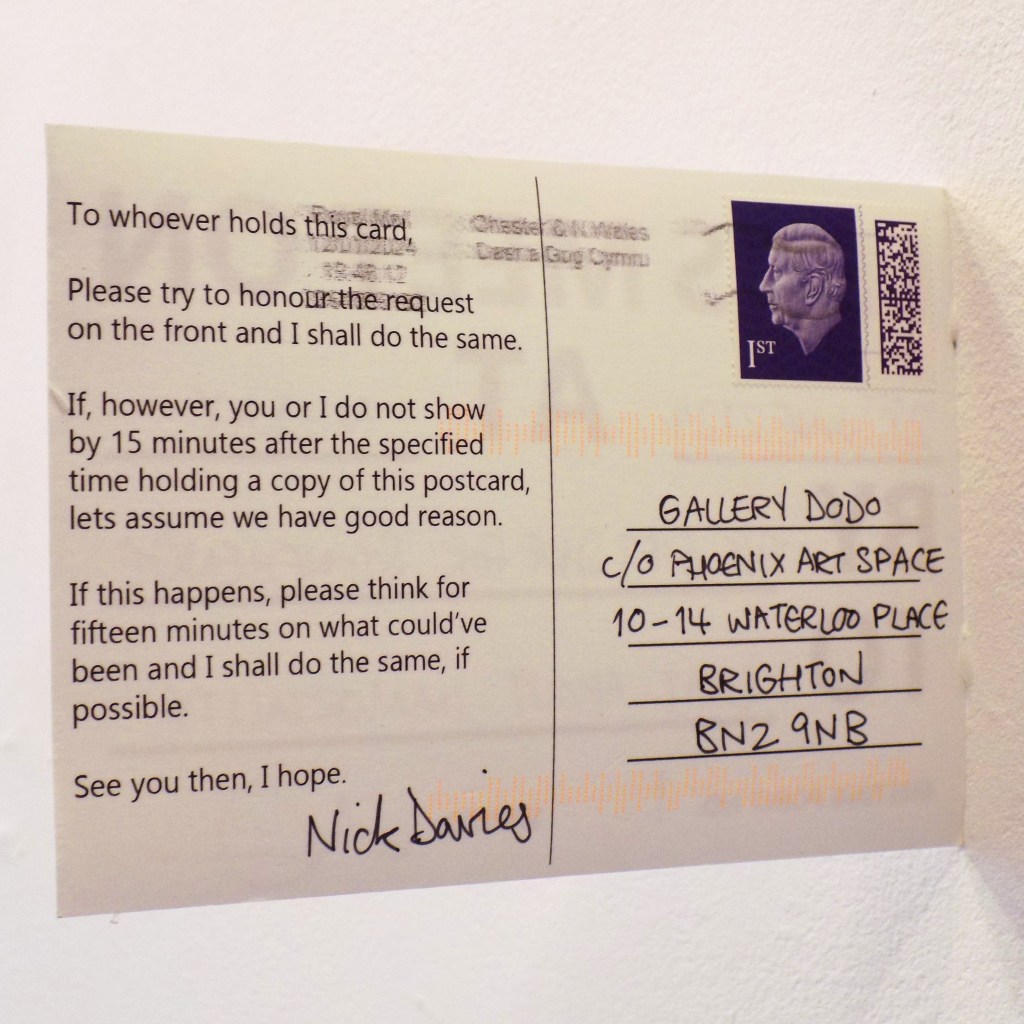 To whoever holds this card,
Please try to honour the request
on the front and I shall do the same.
If, however, you or I do not show
by 15 minutes after the specified
time holding a copy of this postcard,
lets assume we have good reason.
If this happens, please think for
fifteen minutes on what could've
been and I shall do the same, if
possible.
See you then, I hope.
Nick Davies
Royal Mail
12/01/2024
Chester & N Wales
Caer a Gog Cymru
1ST
GALLERY DODO
c/o PHOENIX ART SPACE
10-14 WATERLOO PLACE
BRIGHTON
BN2 9NB